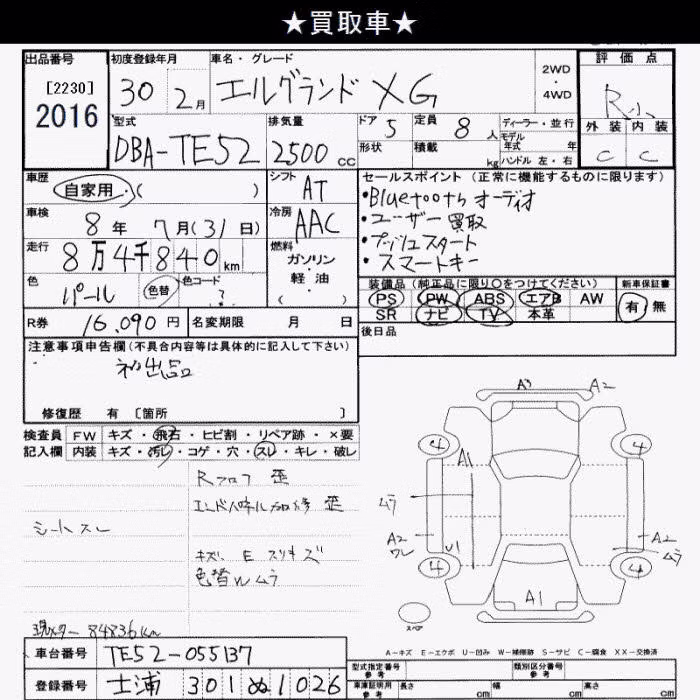 ★買取車★
出品番号 初度登録年月 車名・グレード 評価点
[2230]
2016
30 2月 エルグランド XG 2WD・4WD R小
外装 内装
C C
型式 排気量 ドア 定員 ディーラー・並行
DBA-TE52 2500cc 5 8人 モデル年式 年
形状 積載 kg ハンドル 左・右
車歴 自家用・( ) シフト AT
セールスポイント(正常に機能するものに限ります)
・Bluetoothオーディオ
・ユーザー買取
・プッシュスタート
・スマートキー
車検 8年 7月(31日) 冷房 AAC
走行 8万4千840km 燃料 ガソリン・軽油・( )
色 パール 色替 色コード ?
装備品(純正品に限り○をつけてください) 新車保証書
PS PW ABS エアB AW 有・無
SR ナビ TV 本革
R券 16,090円 名変期限 月 日 後日品
注意事項申告欄(不具合内容等は具体的に記入して下さい)
初出品
修復歴 有〔箇所 〕
検査員記入欄 FW キズ・飛石・ヒビ割・リペア跡・×要
内装 キズ・汚レ・コゲ・穴・スレ・キレ・破レ
Rフロア 歪
エンドパネル加修 歪
シートスレ
キズ、E スリキズ
色替Wムラ
現メーター 84836km
A3 A2
4 4
A1
ムラ
A2 ワレ U1 A2 ムラ
4 4
A1
スペア
A-キズ E-エクボ U-凹み W-補修跡 S-サビ C-腐食 XX-交換済
車台番号 TE52-055137
登録番号 土浦 301 ぬ 1026
型式指定番号 参考 類別区分番号 参考
車庫証明用 参考 長さ cm 幅 cm 高さ cm